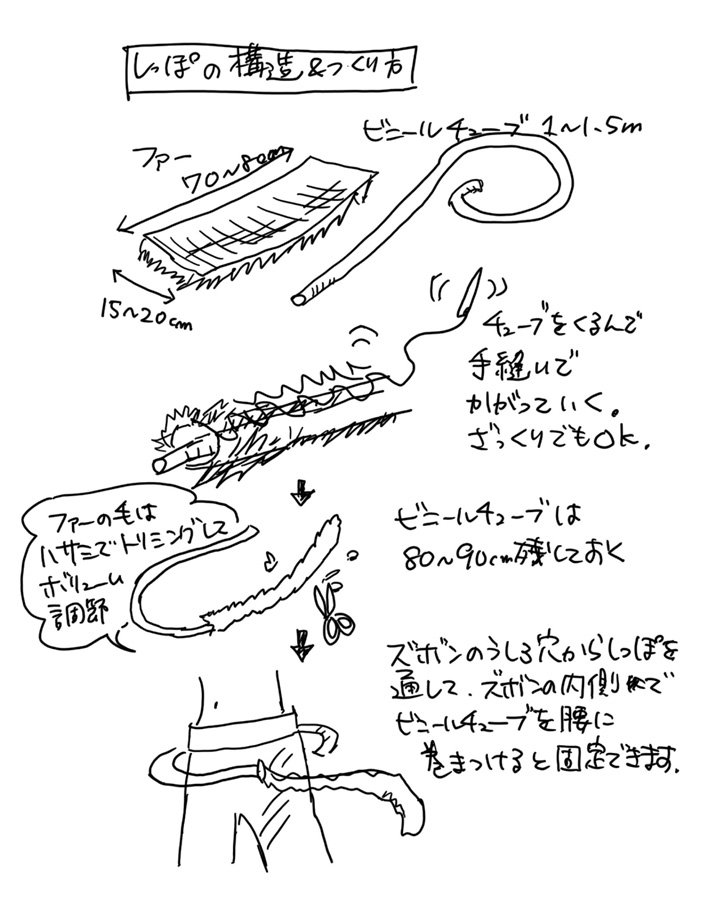 しっぽの構造&つくり方
ビニールチューブ 1~1.5m
ファー
70~80cm
15~20cm
チューブをくるんで
手縫いで
かがっていく。
ざっくりでもOK.
ファーの毛は
ハサミでトリミングして
ボリューム
調節
ビニールチューブは
80~90cm残しておく
ズボンのうしろ穴からしっぽを
通して、ズボンの内側で
ビニールチューブを腰に
巻きつけると固定できます.